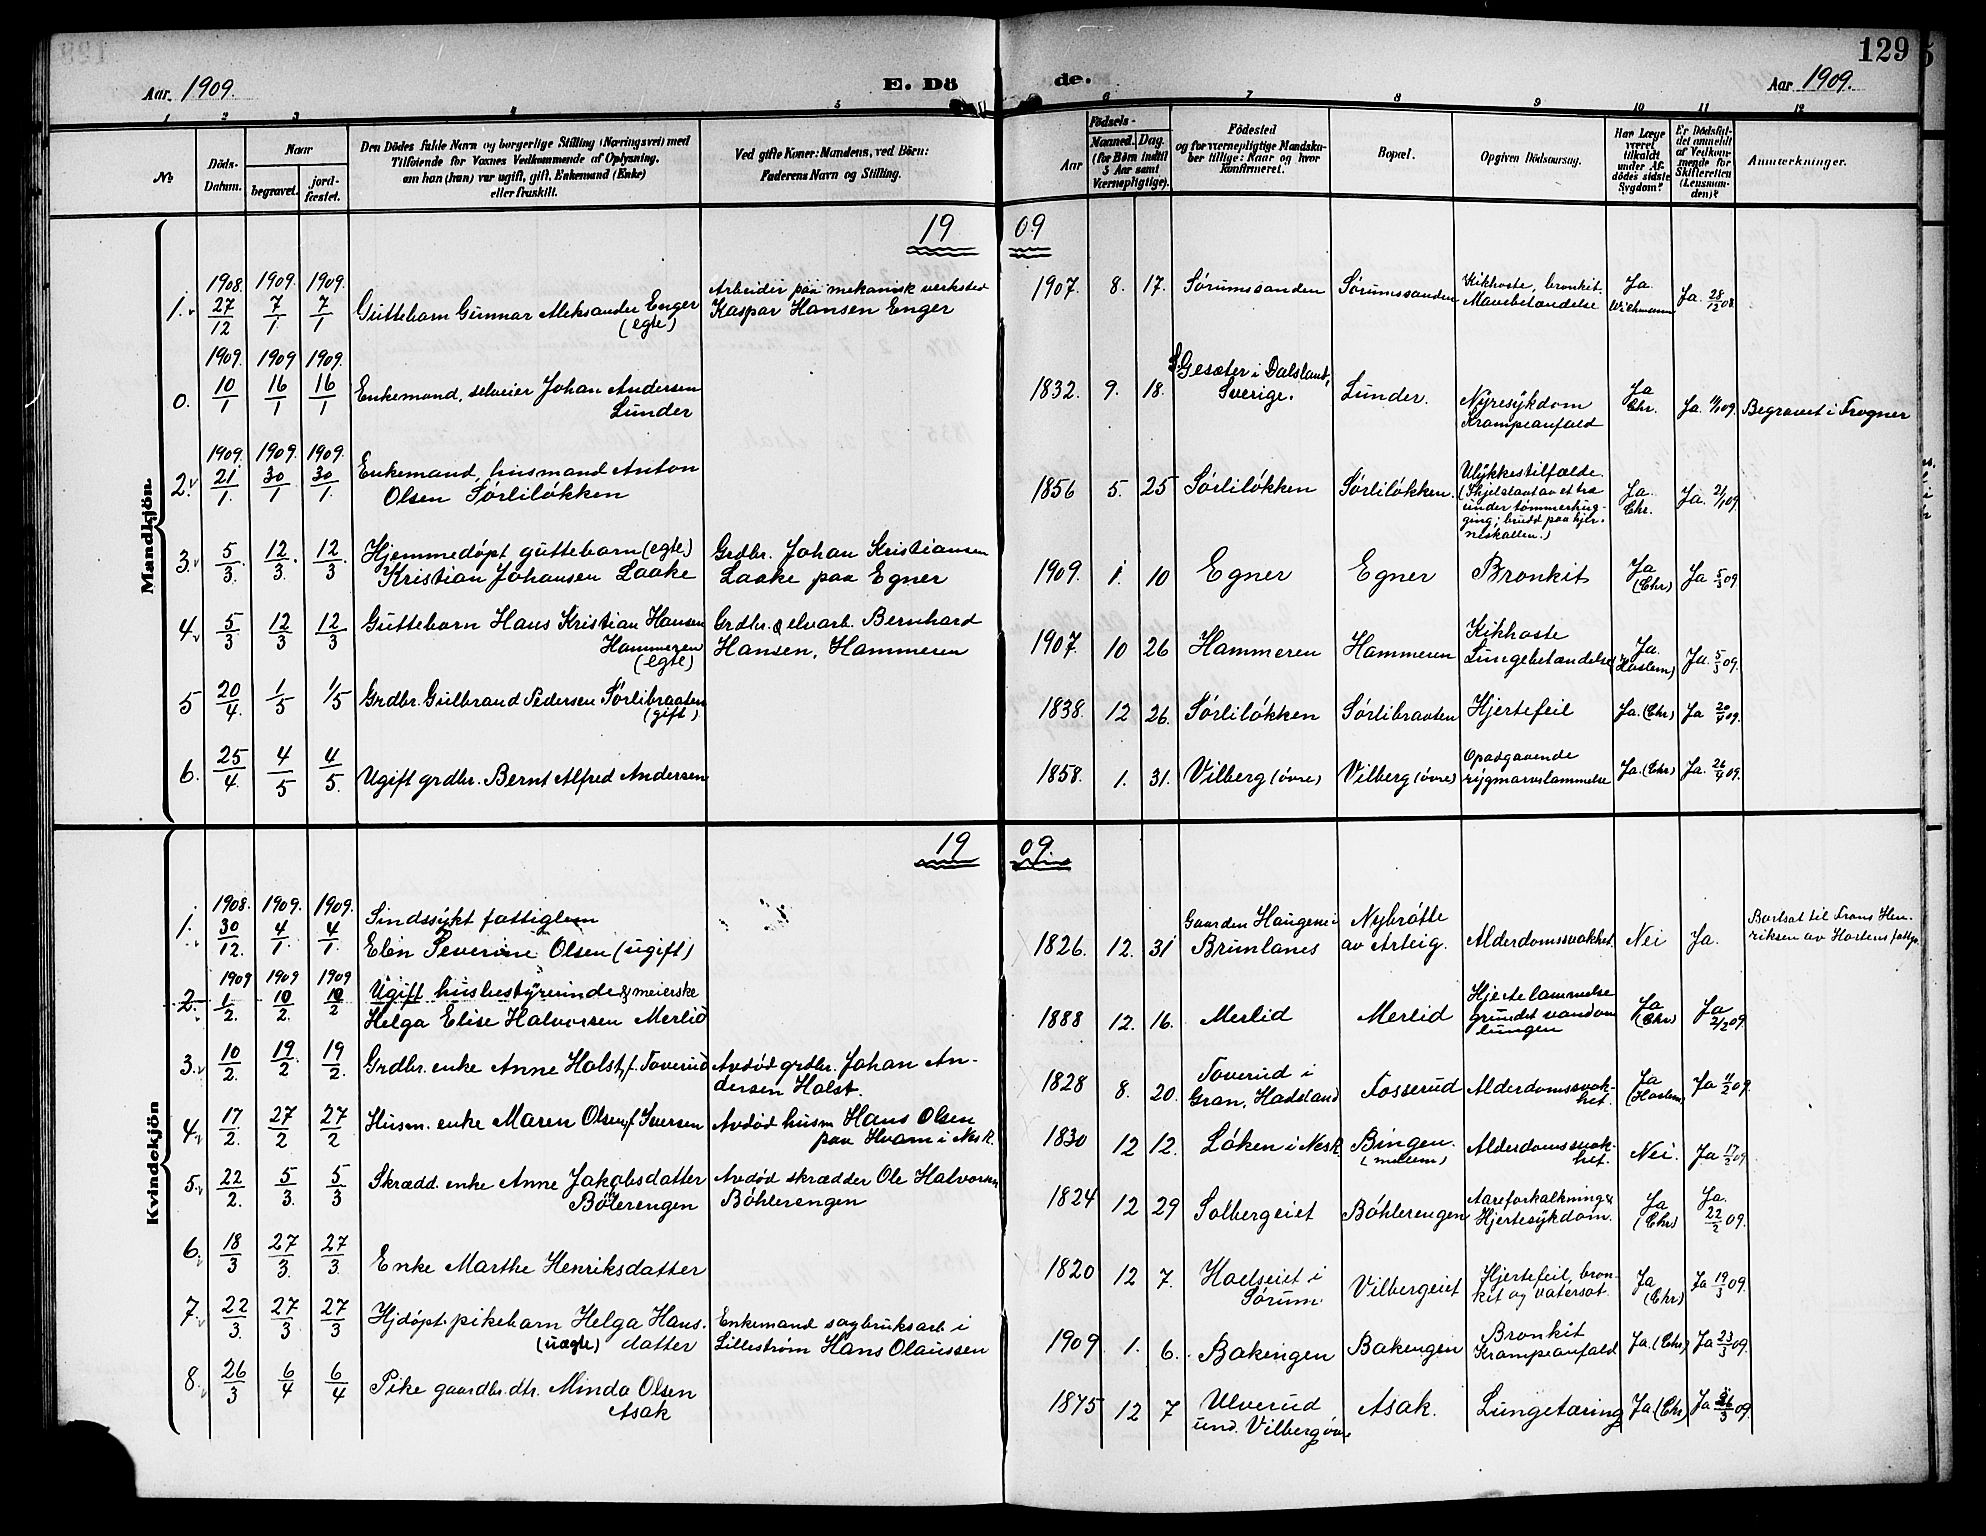 129
Aar. 1909. E. Dö de. Aar 1909.
1 2 3 4 5 6 7 8 9 10 11 12
№
Döds-Datum.
Naar
begravet.
jord-fæstet.
Den Dödes fulde Navn og borgerlige Stilling (Næringsvei) med
Tilföiende for Voxnes Vedkommende af Oplysning,
om han (hun) var ugift, gift, Enkemand (Enke)
eller fraskilt.
Ved gifte Koner: Mandens, ved Börn:
Faderens Navn og Stilling.
Födsels-
Aar
Maaned. Dag.
(for Börn indtil
5 Aar samt
Værnepligtige).
Födested
og for værnepligtige Mandska-
ber tillige: Naar og hvor
konfirmeret.
Bopæl.
Opgiven Dödsaarsag.
Har Læge
været
tilkaldt
under Af-
dödes sidste
Sygdom?
Er Dödsfal-
det anmeldt
af Vedkom-
mende for
Skifteretten
(Lensman-
den)?
Anmærkninger.
Mandkjön.
19 09
1. 1908. 27/12 1909. 7/1 1909. 7/1 Guttebarn Gunnar Aleksander Enger
(egte)
Arbeider paa mekanisk verksted
Kaspar Hansen Enger
1907. 8. 17. Sørumssanden Sørumssanden Kikhoste, bronkit.
Mavebetændelse
Ja.
Wichmann
Ja. 28/12 08
0. 1909. 10/1 1909 16/1 1909. 16/1 Enkemand, selveier Johan Andersen
Lunder
1832. 9. 18. Gesæter i Dalsland,
Sverige. Lunder. Nyresykdom
Krampeanfald
Ja
Chr.
Ja. 11/1 09. Begravet i Frogner
2. 1909. 21/1. 1909. 30/1 1909. 30/1. Enkemand, husmand Anton
Olsen Sørliløkken
1856 5. 25 Sørliløkken Sørliløkken. Ulykkestilfælde.
(Ihjelslaat av et træ
under tømmerhug-
ging; brudd paa hjer-
neskallen.)
Ja.
Chr.
Ja. 21/1 09.
3. 5/3. 12/3. 12/3 Hjemmedøpt guttebarn (egte)
Kristian Johansen Laake
Grdbr. Johan Kristiansen
Laake paa Egner
1909. 1. 10 Egner Egner Bronkit Ja
(Chr)
Ja 5/3 09
4. 5/3 12/3 12/3 Guttebarn Hans Kristian Hansen
Hammeren
(egte)
Grdbr. & elvarb. Bernhard
Hansen, Hammeren
1907. 10 26 Hammeren Hammeren Kikhoste
Lungebetændelse
Ja.
(Haslem)
Ja. 5/3 09.
5 20/4. 1/5 1/5 Grdbr. Gulbrand Pedersen Sørlibraaten
(gift)
1838. 12 26. Sørliløkken Sørlibraaten Hjertefeil Ja. (Chr) Ja 20/4 09.
6. 25/4. 4/5 4/5. Ugift grdbr. Bernt Alfred Andersen
1858. 1. 31. Vilberg (øvre) Vilberg (øvre) Opadgaaende
rygmarvslammelse Ja. (Chr) Ja. 26/4 09.
Kvindekjön
19 09.
1. 1908. 30/12. 1909. 4/1. 1909. 4/1. Sindssykt fattiglem
Elen Severine Olsen (ugift)
1826. 12. 31 Gaarden Haugene i
Brunlanes
Nybrøtte
av Arteig. Alderdomssvakhet. Nei Ja.
Bortsat til Frans Hen-
riksen av Hortens fattigv.
2. 1909 1/2. 1909 10/2. 1909 10/2 Ugift husbestyrerinde & meierske
Helga Elise Halvorsen Merlid
1888 12. 16. Merlid Merlid Hjertelammelse
grundet vand om
lungen
Ja
(Chr)
Ja
2/2 09.
3. 10/2. 19/2. 19/2. Grdbr. enke Anne Holst, f. Toverud Avdød grdbr. Johan An-
dersen Holst.
1828 8. 20. Toverud i
Gran, Hadeland Fosserud Alderdomssvak-
het.
Ja
(Haslem)
Ja 11/2 09
4. 17/2. 27/2 27/2 Husm. enke Maren Olsen, f. Iversen Avdød husm. Hans Olsen
paa Hvam i Nesk.
1830 12 12. Løken i Nesk. Bingen.
(mellem)
Alderdomssvak-
het. Nei. Ja 17/2 09
5. 22/2. 5/3. 5/3 Skrædd. enke Anne Jakobsdatter
Bølerengen
Avdød skrædder Ole Halvorsen
Bøhlerengen
1824 12 29 Solbergeiet Bøhlerengen Aareforkalkning &
Hjertesykdom.
Ja
(Chr)
Ja.
22/2 09.
6. 18/3 27/3. 27/3. Enke Marthe Henriksdatter
1820 12 7. Hoelseiet i
Sørum. Vilbergeiet Hjertefeil, bron-
kit og vatersot.
Ja
(Chr)
Ja 19/3 09.
7. 22/3. 27/3 27/3 Hjdøpt pikebarn Helga Hans-
(uægte) datter
Enkemand sagbruksarb. i
Lillestrøm Hans Olaussen
1909 1. 6. Bakengen Bakengen Bronkit
Krampeanfald Ja. (Chr) Ja 23/3 09.
8. 26/3 6/4 6/4 Pike gaardbr. dtr. Minda Olsen
Asak
1875 12 7 Ulverud
und. Vilberg øvre Asak. Lungetæring Ja (Chr) Ja 26/3 09.